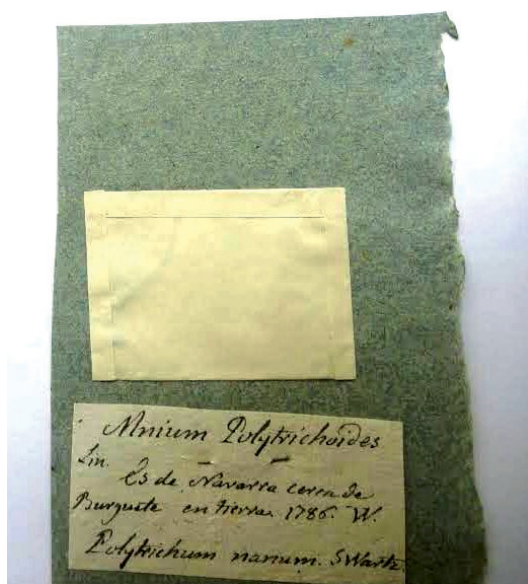 Mnium Polytrichoides
Lin.
Es de Navarra cerca de
Burguete en tierra. 1786. W.
Polytrichum nanum. Swartz.